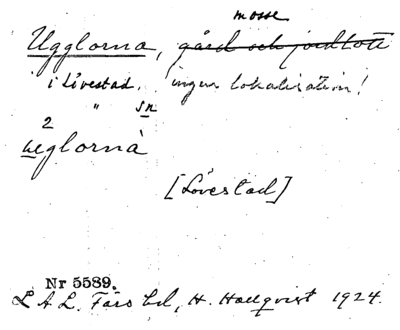 mosse
Ugglorna, gård och jordlott
i Lövestad. ingen lokalisation!
" sn
2
ueglornà
[Lövestad]
Nr 5589.
L A L. Färs hd, H. Hallqvist 1924.